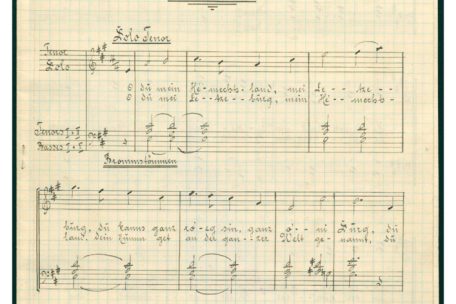 Solo Tenor
Tenor
Solo
O du mein Hemechtsland, mei Le - tze -
O du mei Le - tze - burg, mein Hemechts -
Tenors I + II
Basses I + II
Brommstömmen
burg, du kanns ganz röeg sin, ganz o - ni Surg, du
land, dein Numm get an der gan - zer Welt ge - nannt, du